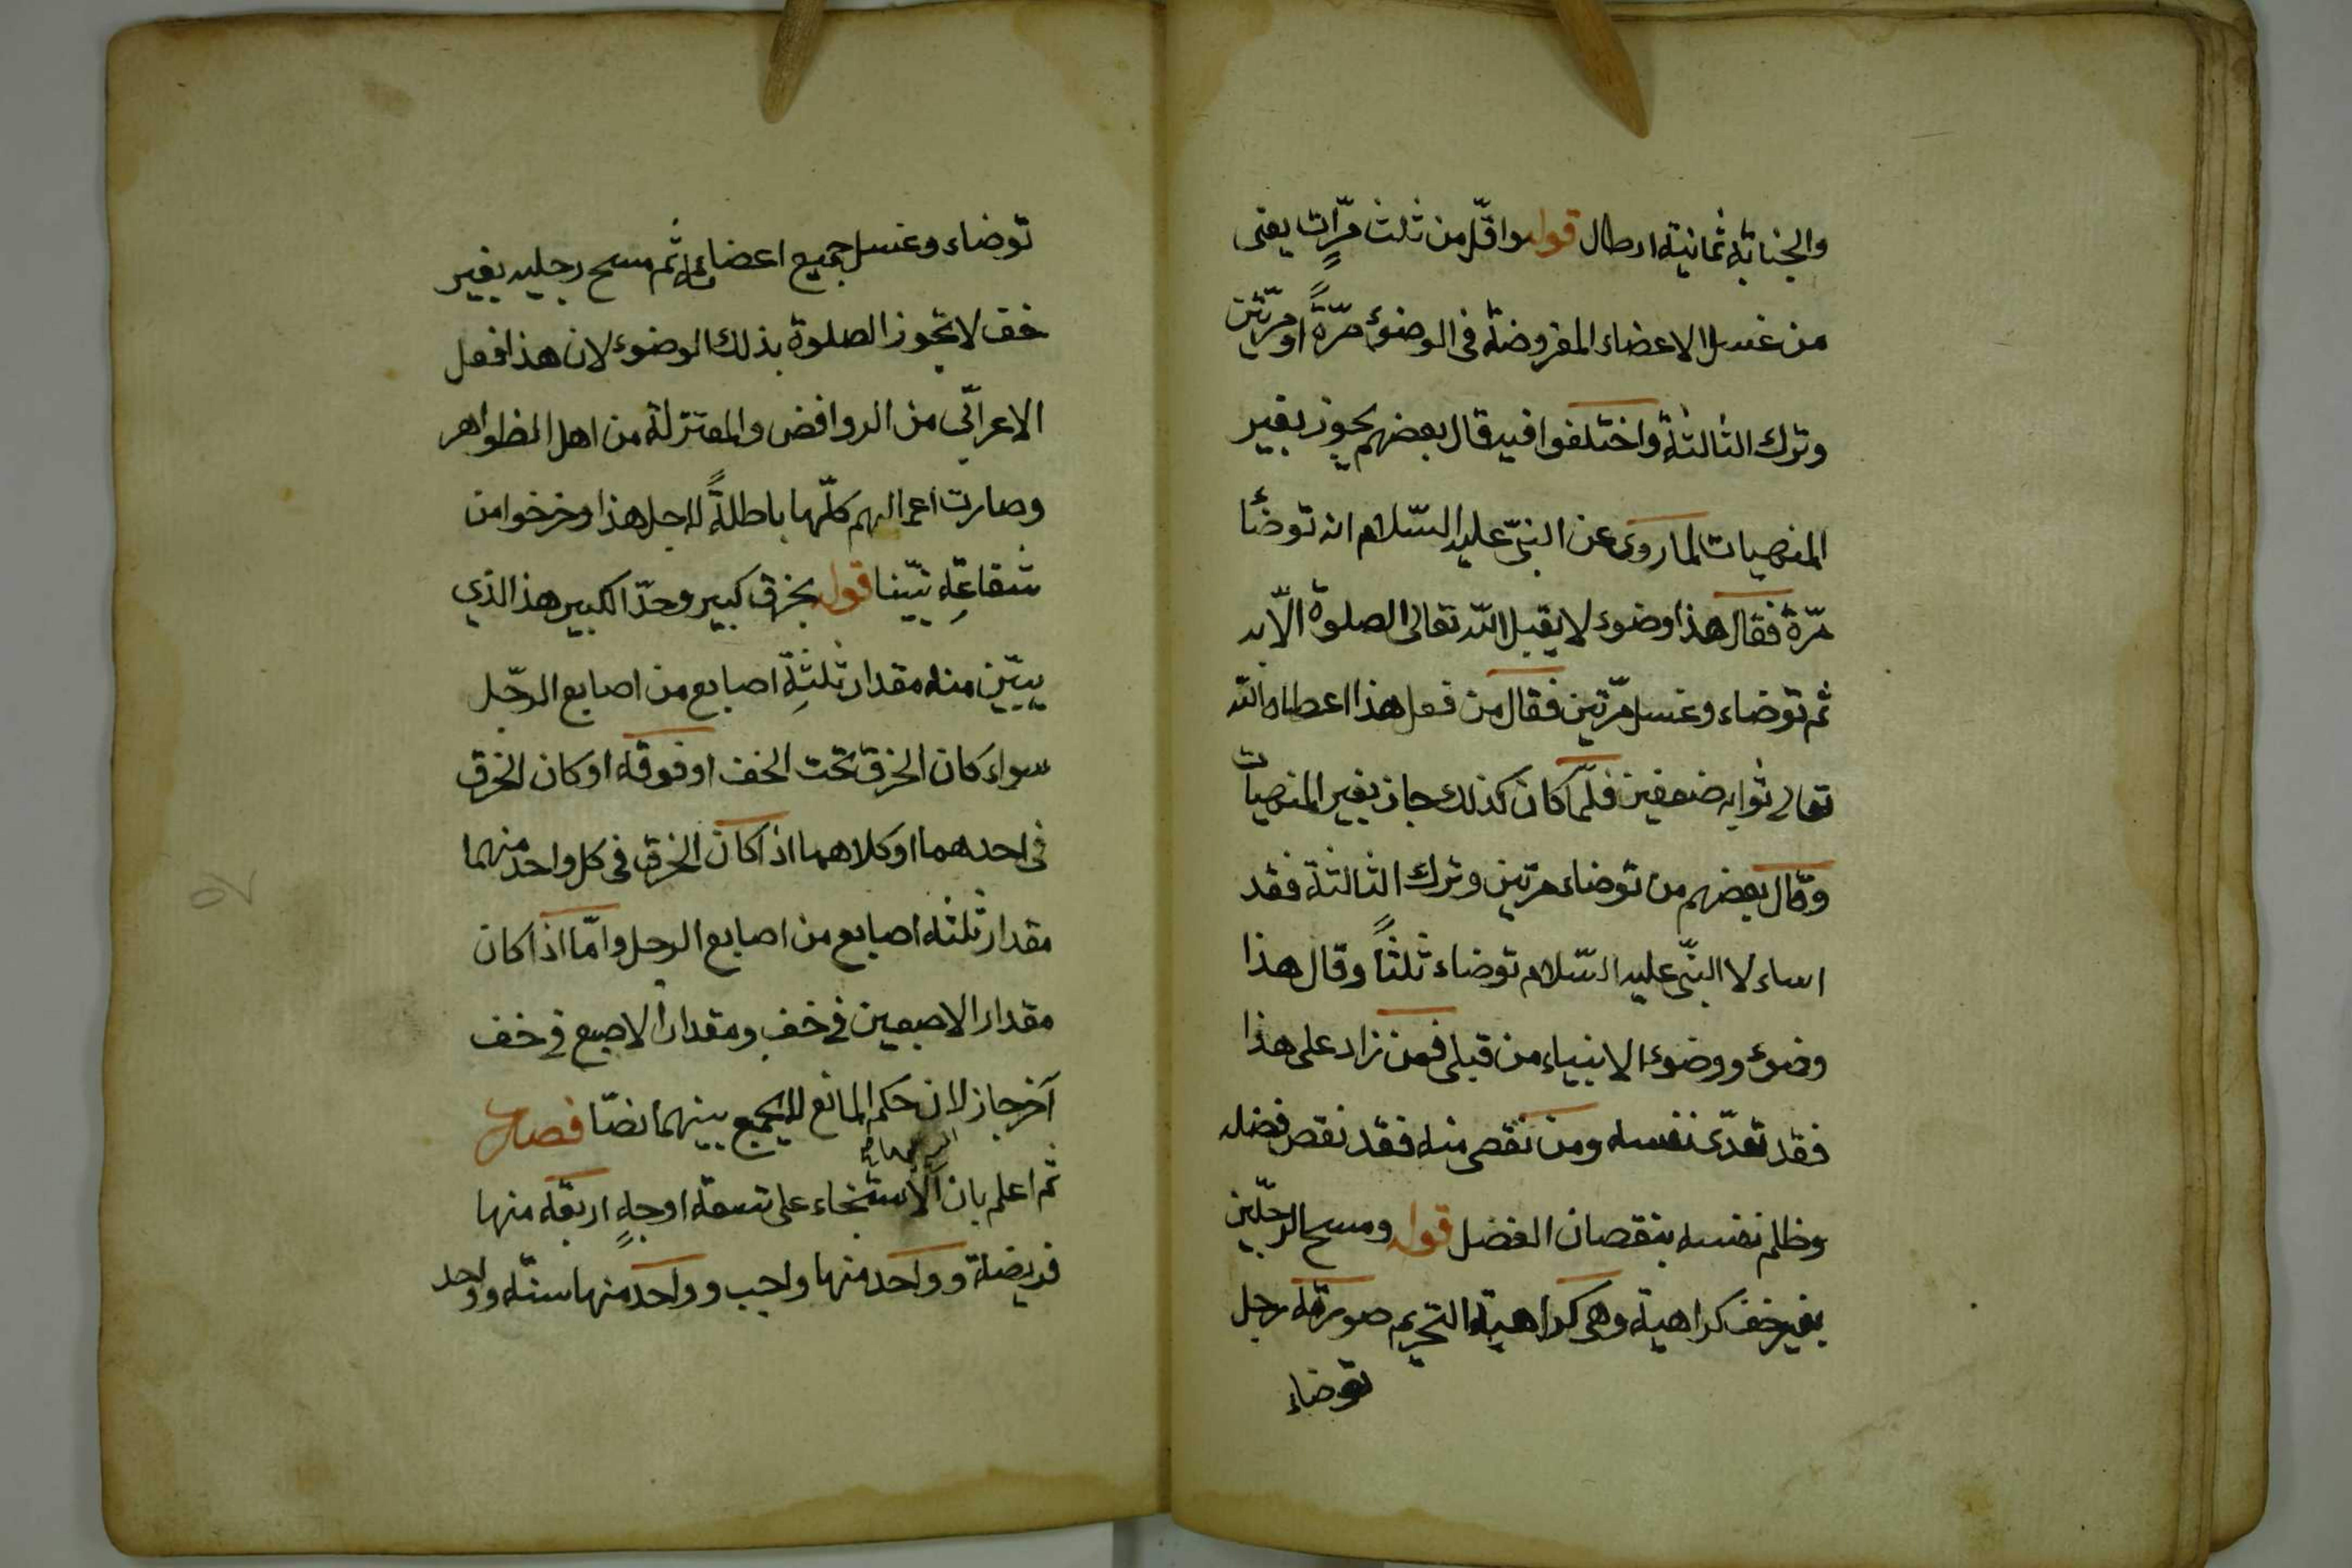 والجنابة ثمانية ارطال قوله واقلّ من ثلث مرّاتٍ يعنى
من غسل الاعضاء المفروضة فى الوضوء مرّةً او مرّتين
وترك الثالثة واختلفوا فيه قال بعضهم يجوز بغير
المنهيات لما روى عن النبىّ عليه السّلام انه توضأ
مرّة فقال هذا وضوء لا يقبل الله تعالى الصلوة الّا به
ثم توضاء وغسل مرّتين فقال من فعل هذا اعطاه الله
تعالى ثوابه ضعفين فلمّا كان كذلك جاز بغير المنهيات
وقال بعضهم من توضاء مرتين وترك الثالثة فقد
اساء لا النبىّ عليه السّلام توضاء ثلثاً وقال هذا
وضوء ووضوء الانبياء من قبلى فمن زاد على هذا
فقد تعدّى نفسه ومن نقص منه فقد نقص فضله
وظلم نفسه بنقصان الفضل قوله ومسح الرجّلين
بغير خف كراهية وهى كراهية التحريم صورته رجل
توضاء
توضاء وغسل جميع اعضائه ثم مسح رجليه بغير
خف لا تجوز الصلوة بذلك الوضوء لان هذا فعل
الاعرابّى من الروافض والمعتزلة من اهل الظواهر
وصارت اعمالهم كلّها باطلةً لاجل هذا وخرخوا من
شفاعةِ نبيّنا قوله بخرق كبير وحدّ الكبير هذا الذي
يبيّن منه مقدار ثلثةِ اصابع من اصابع الرجّل
سواء كان الخرق تحت الخف او فوقه او كان الخرق
فى احدهما او كلاهما اذا كان الخرق فى كل واحد منهما
مقدار ثلثة اصابع من اصابع الرجل وامّا اذا كان
مقدار الاصبعين فى خف ومقدار الاصبع فى خف
آخر جاز لان حكم المانع للجمع بينهما نصّا فصل
ثم اعلم بان الاستنجاء على تسعة اوجهٍ اربعة منها
فريضة وواحد منها واجب وواحد منها سنّة وواحد